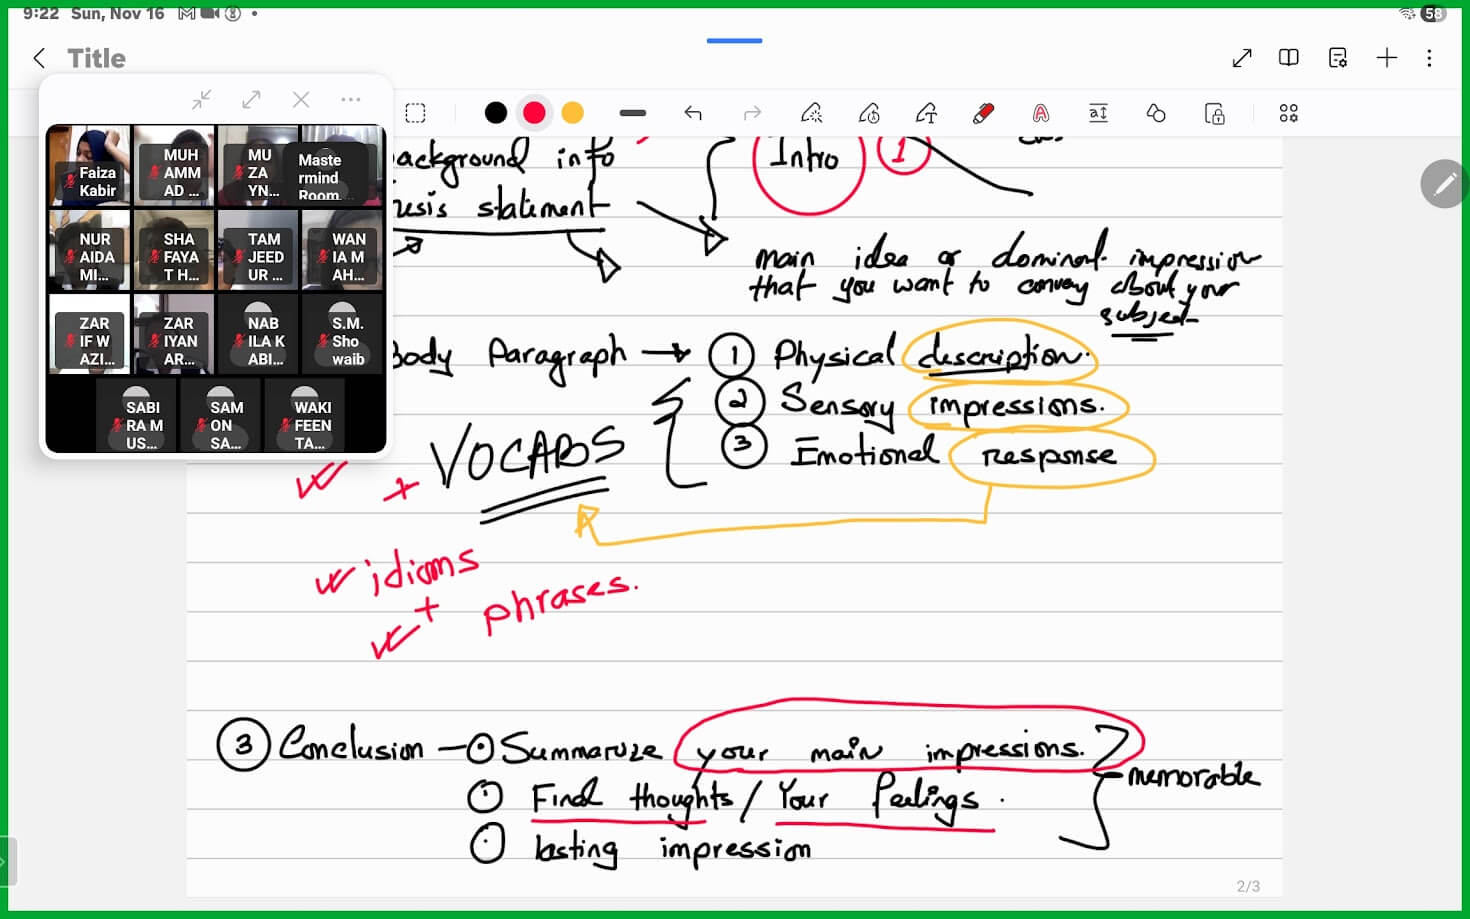 9:22 Sun, Nov 16
58
Title
Faiza Kabir
MUH AMM AD ...
MU ZA YN...
Maste rmind Room...
NUR AIDA MI...
SHA FAYA T H...
TAM JEED UR ...
WAN IA M AH...
ZAR IF W AZI...
ZAR IYAN AR...
NAB ILA K ABI...
S.M. Sho waib
SABI RA M US...
SAM ON SA...
WAKI FEEN TA...
ackground info
Intro 1
esis statement
main idea or dominant impression
that you want to convey about your
subject
Body Paragraph → 1 Physical description.
2 Sensory impressions.
3 Emotional response
+ VOCABS
idioms
+ phrases.
3 Conclusion - Summarize your main impressions.
memorable
Final thoughts / Your feelings.
lasting impression
2/3